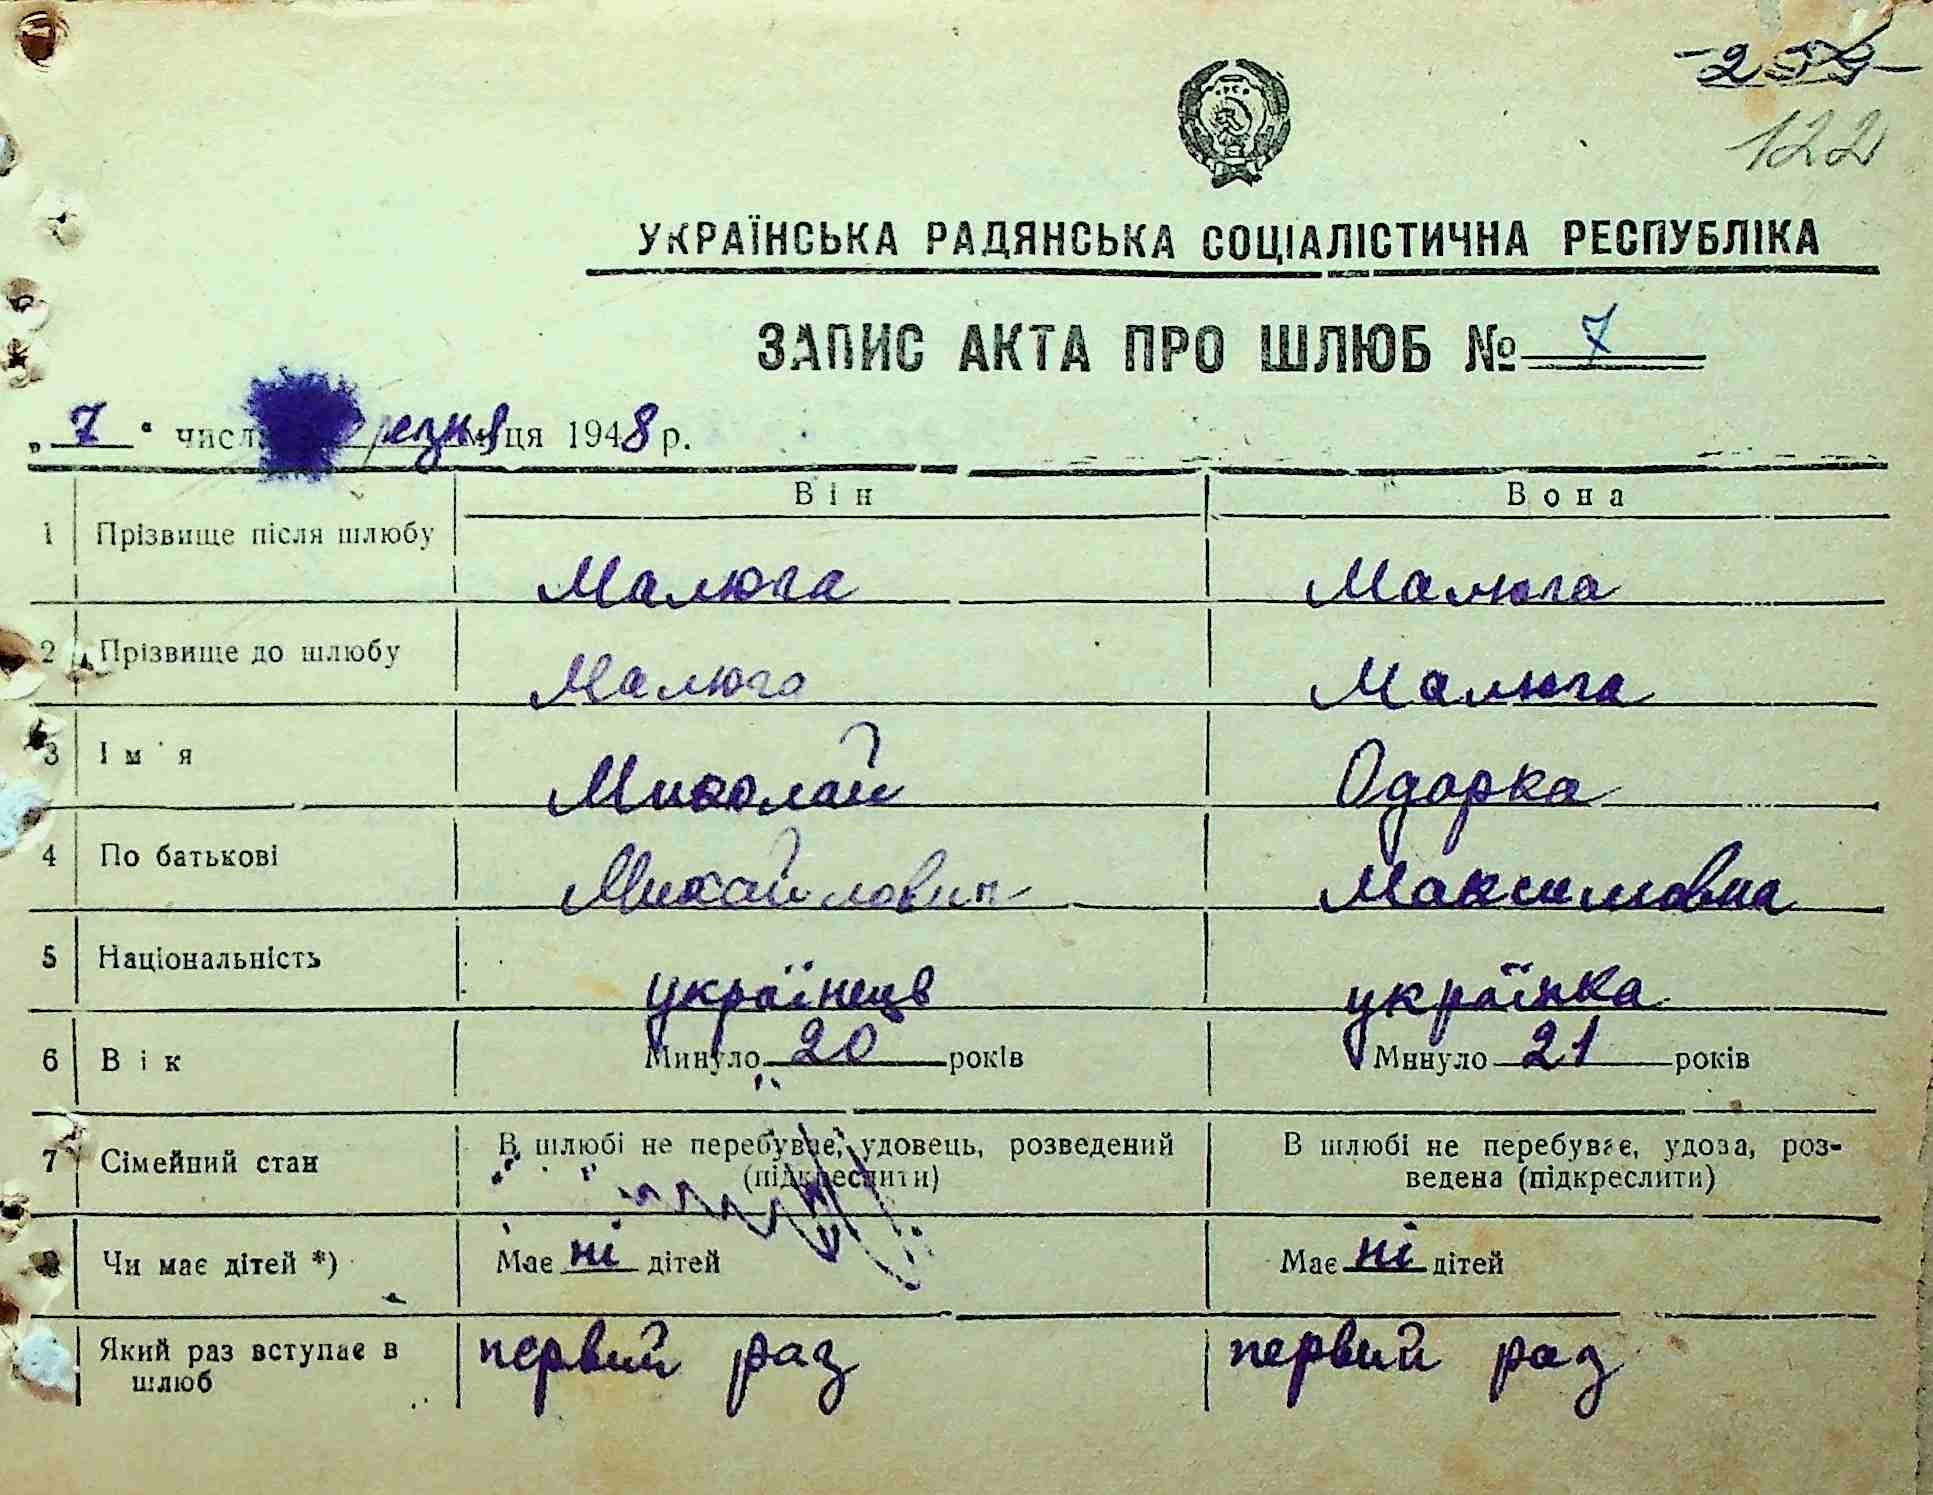 122
УКРАЇНСЬКА РАДЯНСЬКА СОЦІАЛІСТИЧНА РЕСПУБЛІКА
ЗАПИС АКТА ПРО ШЛЮБ № 7
„7“ числа березня місяця 1948 р.
Він Вона
1 Прізвище після шлюбу Малюга Малюга
2 Прізвище до шлюбу Малюга Малюга
3 Ім'я Миколай Одарка
4 По батькові Михайлович Максимовна
5 Національність українець українка
6 Вік Минуло 20 років Минуло 21 років
7 Сімейний стан В шлюбі не перебуває, удовець, розведений (підкреслити) В шлюбі не перебуває, удова, роз-
ведена (підкреслити)
8 Чи має дітей *) Має ні дітей Має ні дітей
Який раз вступає в шлюб первий раз первий раз